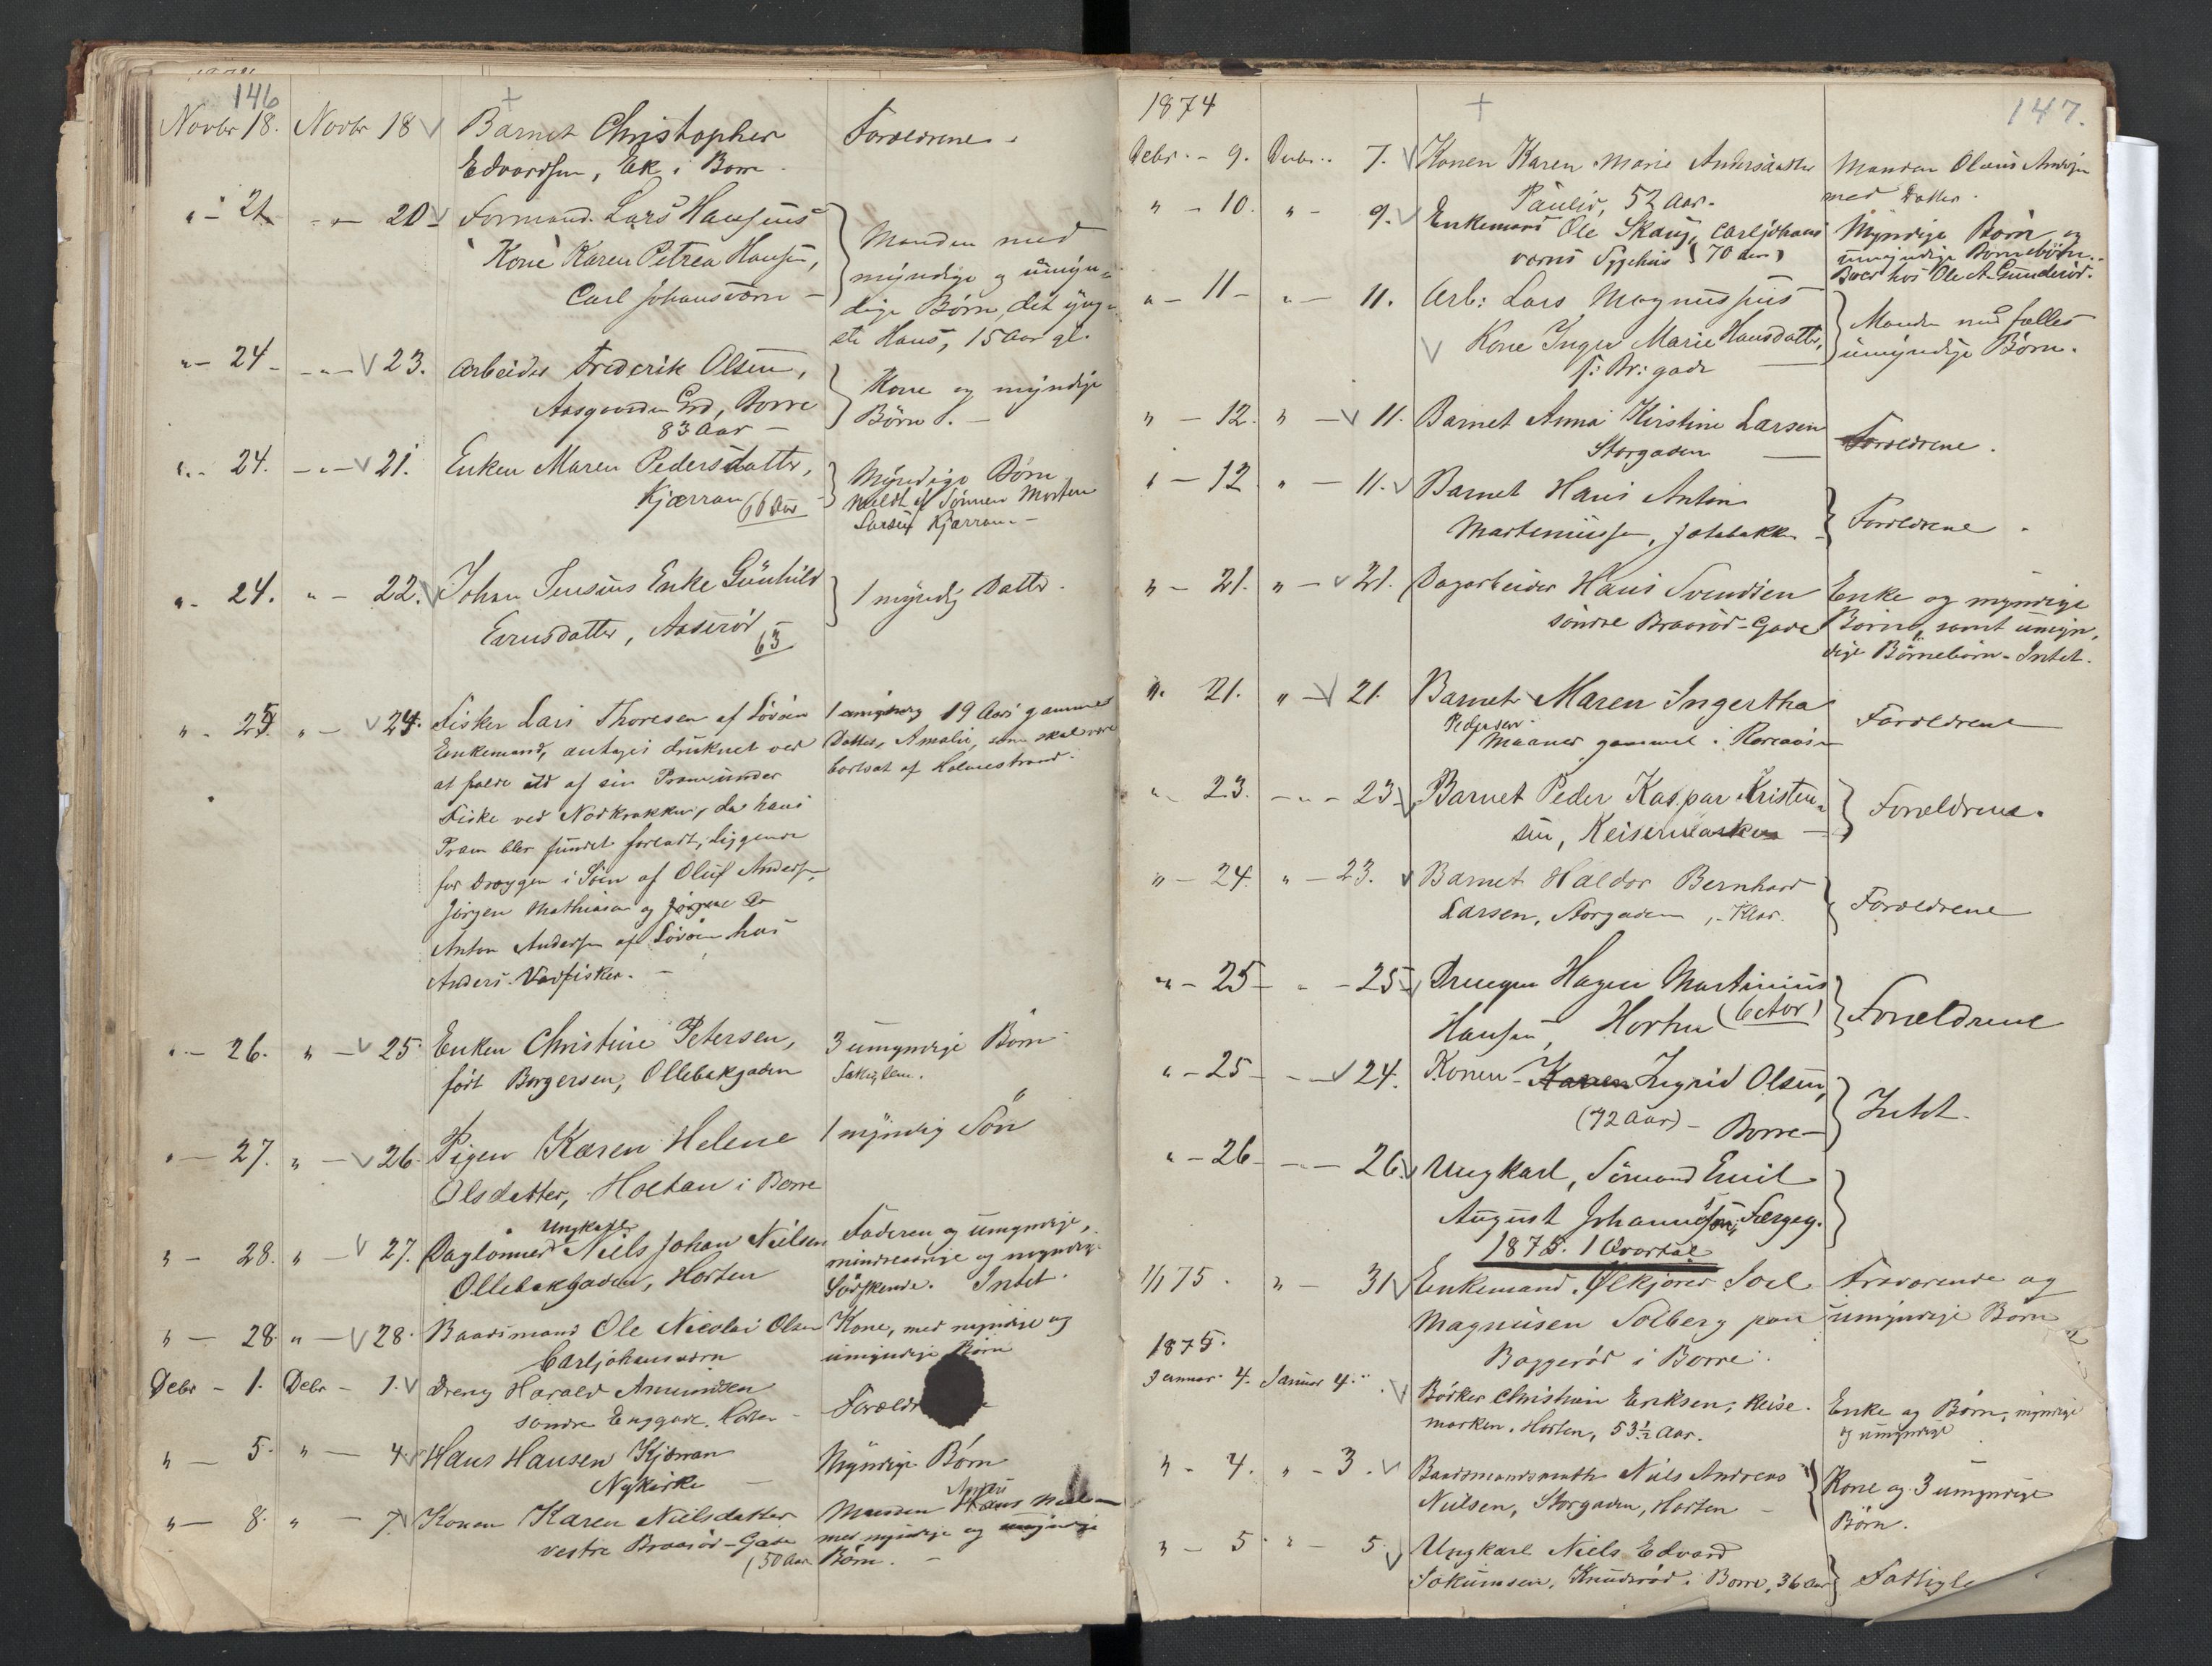 146
Novbr 18. Novbr 18 Barnet Christopher Forældrene.
Edvardsen, Ek i Borre.
" - 21. " - 20 Formand Lars Hansens
Kone Karen Petrea Hansen, Manden med
Carl Johansværn - myndige og umyn-
dige Børn, det yng-
ste Hans, 15 Aar gl.
" - 24 - " - 23. Arbeider Frederik Olsen,
Aasgaarden Borre Kone og myndige
83 Aar - Børn. -
" - 24. - " - 21. Enken Maren Pedersdatter, Myndige Børn
Kjærran 66 Aar meldt af Sønnen Morten
Larsen Kjærran -
" - 24. " - 22. Johan Jensens Enke Gunhild 1 myndig Datter.
Aaserød 63
" - 25. " - 24. Fisker Lars Thoresen af Løvøen 1 19 Aars gammel
Enkemand, antages druknet ved Datter, Amalie, som skal være
at falde ud af sin Pram under bortsat af Holmestrand.
Fiske ved da hans
Pram blev fundet forladt, liggende
for Dræggen i Søen af Oluf Andersen,
Jørgen Mathiasen og
Anton Andersen af Løvøen hos
Anders Vadfisker. -
" - 26. " - 25. Enken Christine Petersen, 3 umyndige Børn
født Borgersen, Ollebakgaden
" - 27. " - 26. Pigen Karen Helene 1 myndig Søn
Olsdatter, Holtan i Borre
Ungkarl
" - 28. " - 27. Daglønner Niels Johan Nielsen Faderen og umyndige,
Ollebakgaden, Horten mindreaarige og myndige
Sødskende. Intet.
" - 28. " - 28. Baadsmand Ole Nicolai Olsen Kone, med myndige og
Carljohansværn umyndige Børn
Debr - 1. Debr - 1. Dreng Harald Amundsen Forældr
søndre Enggade, Horten -
" - 5. " - 4. Hans Hansen Kjærran Myndige Børn
Nykirke -
" - 8. " - 7. Konen Karen Nielsdatter Manden Nielsen
vestre Braarød-Gade med myndige og umyndige
(50 Aar Børn. -
147.
1874
Debr. - 9. Debr. 7. Konen Karen Marie Andersdatter Manden Olaus Andersen
52 Aar. med Datter.
" - 10. " - 9. Enkemand Ole Skaug, Carljohans Myndige Børn og
værns Sygehus (70 Aar) umyndige Børnebørn.
Boer hos Ole A. Gunderød.
" - 11 - " - 11. Arb: Lars Magnussens Manden med fælles
Kone Inger Marie Hansdatter, umyndige Børn.
gade
" - 12. " - 11. Barnet Anna Kirstine Larsen Forældrene.
Storgaden
" - 12 " - 11. Barnet Hans Anton
Martiniussen, Forældrene.
" - 21. " - 21. Dagarbeider Hans Svendsen Enke og myndige
søndre Braarød-Gade Børn, samt umyn-
dige Børnebørn - Intet.
" 21. " - 21. Barnet Maren Ingertha Forældrene
Pedersen
Maaned gammel i
" - 23. - " - 23 Barnet Peder Kaspar Kristen- Forældrene.
sen, Keisemarken -
" - 24. " - 23. Barnet Haldor Bernhard
Larsen, Storgaden, Forældrene
" - 25 - " - 25 Drengen Hagen Martinius Forældrene
Hansen, Horten (6 Aar)
" - 25 - " - 24. Konen Karen Ingrid Olsen,
(72 Aar) - Borre - Intet.
" - 26 - " - 26 Ungkarl, Sømand Emil
August Johannessen,
1875. 1 Qvartal
1/1 75. " - 31 Enkemand. Ølkjører Joel Fraværende og
Magnusen Solberg paa umyndige Børn
1875. Baggerød i Borre.
Januar 4. Januar 4. Bødker Christian Eriksen, Keise- Enke og Børn, myndige
marken. Horten, 53½ Aar. og umyndige
" - 4. " - 3. Baadsmandsmath Niels Andreas Kone og 3 umyndige
Nielsen, Storgaden, Horten - Børn.
" - 5. " - 5. Ungkarl Niels Edvard
Jokumsen, Knudsrød i Borre, 36 Aar Fattigl